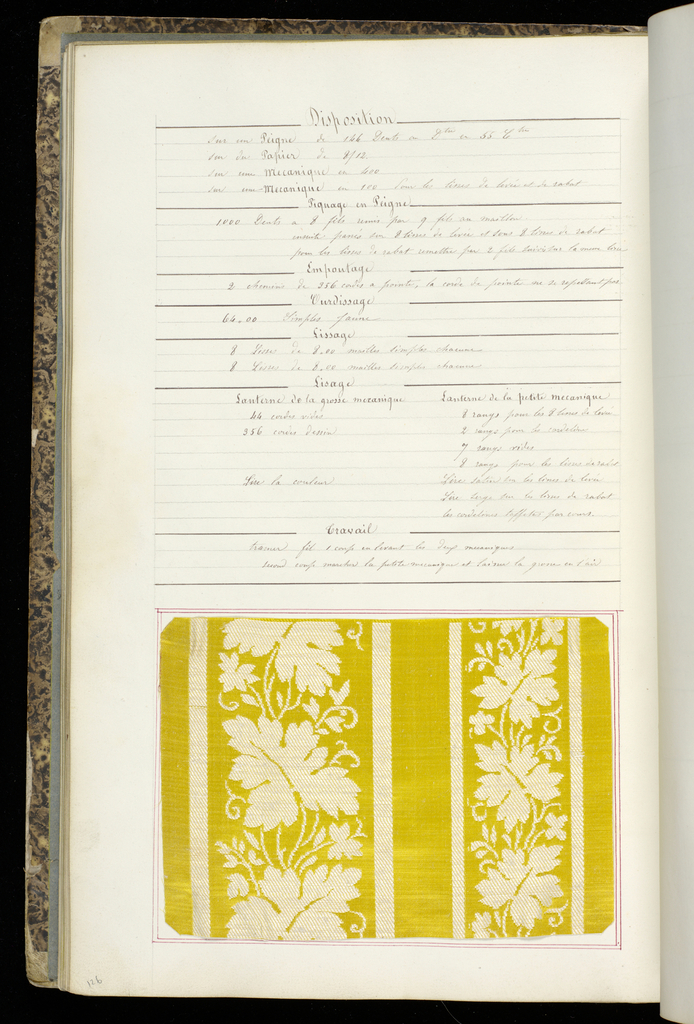 Disposition
sur un Peigne de 146 Dents au en 55
sur du Papier de 8/12
sur une Mecanique en 400
sur une Mecanique en 100 Pour les lisses de levée et de rabat
Piquage en Peigne
1000 Dents a 8 fils remis par 9 fils au maillon
ensuite passés sur 8 lisses de levée et sous 8 lisses de rabat
pour les lisses de rabat remettre par 2 fils sur la meme lisse
Empoutage
2 chemins de 356 cordes a pointe, la corde de pointe ne se repettant pas,
Ourdissage
64,00 Simples Jaune
Lissage
8 Lisses de 8,00 mailles simples chacune
8 Lisses de 8,00 mailles simples chacune
Lisage
Lanterne de la grosse mecanique
44 cordes vides
356 cordes dessin
Lire la couleur
Lanterne de la petite mecanique
8 rangs pour les 8 lisses de levée
2 rangs pour le cordeline
7 rangs vides
8 rangs pour les lisses de rabat
Lire satin sur les lisses de levée
Lire serge sur les lisses de rabat
les cordelines taffetas par coups.
Travail
tramer fil 1 coup en levant les deux mecaniques
second coup marcher la petite mecanique et laisser la grosse en l'air
126